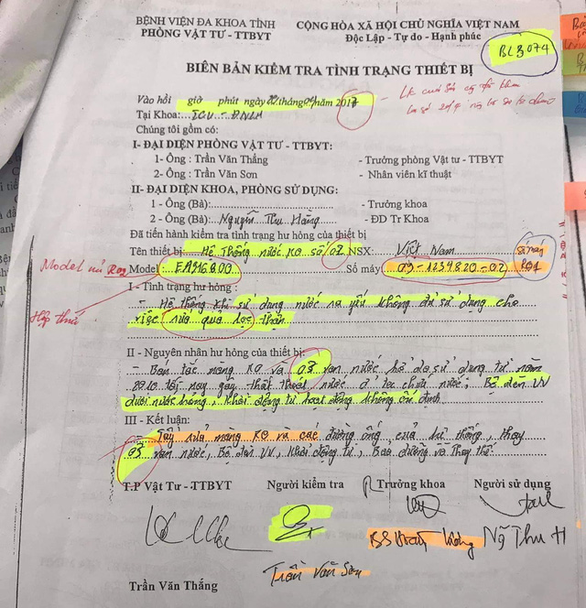 BỆNH VIỆN ĐA KHOA TỈNH
PHÒNG VẬT TƯ - TTBYT
CỘNG HÒA XÃ HỘI CHỦ NGHĨA VIỆT NAM
Độc Lập - Tự do - Hạnh phúc
BL3074
BIÊN BẢN KIỂM TRA TÌNH TRẠNG THIẾT BỊ
Vào hồi giờ phút ngày tháng năm 2017
Tại Khoa:
Chúng tôi gồm có:
I- ĐẠI DIỆN PHÒNG VẬT TƯ - TTBYT:
1- Ông : Trần Văn Thắng - Trưởng phòng Vật tư - TTBYT
2- Ông : Trần Văn Sơn - Nhân viên kĩ thuật
II- ĐẠI DIỆN KHOA, PHÒNG SỬ DỤNG:
1 - Ông (Bà): - Trưởng khoa
2 - Ông (Bà): Nguyễn Thu Hằng - ĐD Tr Khoa
Đã tiến hành kiểm tra tình trạng hư hỏng của thiết bị
Tên thiết bị: Hệ Thống nước RO số 02 NSX: Việt Nam
Model: Số máy
I - Tình trạng hư hỏng :
- Hệ thống khi sử dụng nước ra yếu không đủ sử dụng cho
việc rửa quả lọc thận
II - Nguyên nhân hư hỏng của thiết bị:
- Báo tắc màng RO và 03 van nước bị do sử dụng từ năm
2010 tới nay gây thất thoát nước ở chứa nước, Bộ đèn UV
dưới nước hỏng, khởi động từ hoạt động không ổn định
III - Kết luận:
- Tẩy rửa màng RO và các đường ống của hệ thống, thay
03 van nước, Bộ đèn UV, khởi động từ, Bảo dưỡng và Thay thế
T.P Vật Tư - TTBYT Người kiểm tra Trưởng khoa Người sử dụng
Ng Thu H
Trần Văn Thắng
Trần Văn Sơn